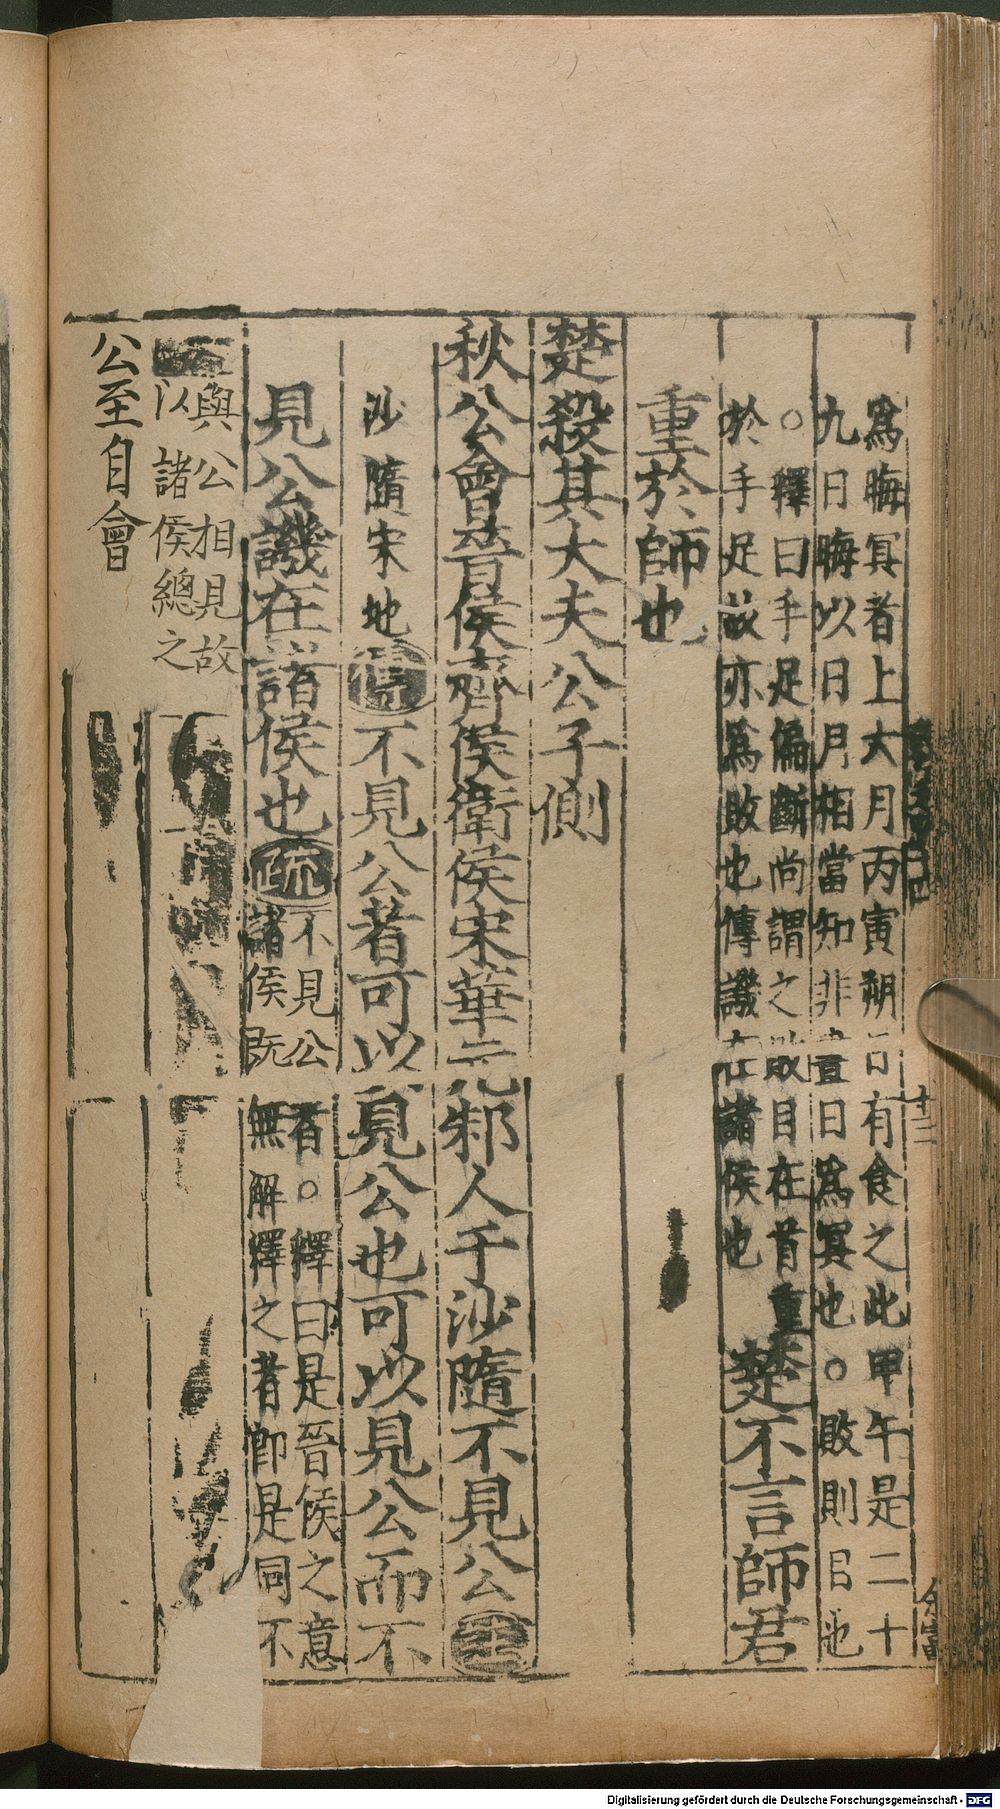 為晦冥者上大月丙寅朔日有食之此甲午是二十
九日晦以日月相當知非晝日為冥也○敗則目也
○釋曰手足偏斷尚謂之敗目在首重
於手足故亦為敗也傳譏在諸侯也
楚不言師君
重於師也
楚殺其大夫公子側
秋公會晉侯齊侯衛侯宋華元邾人于沙隨不見公
沙隨宋地
不見公者可以見公也可以見公而不
見公譏在諸侯也疏
不見公者○釋曰是晉侯之意
諸侯既無解釋之者即是同不
與公相見故
以諸侯總之
公至自會
Digitalisierung gefördert durch die Deutsche Forschungsgemeinschaft - DFG